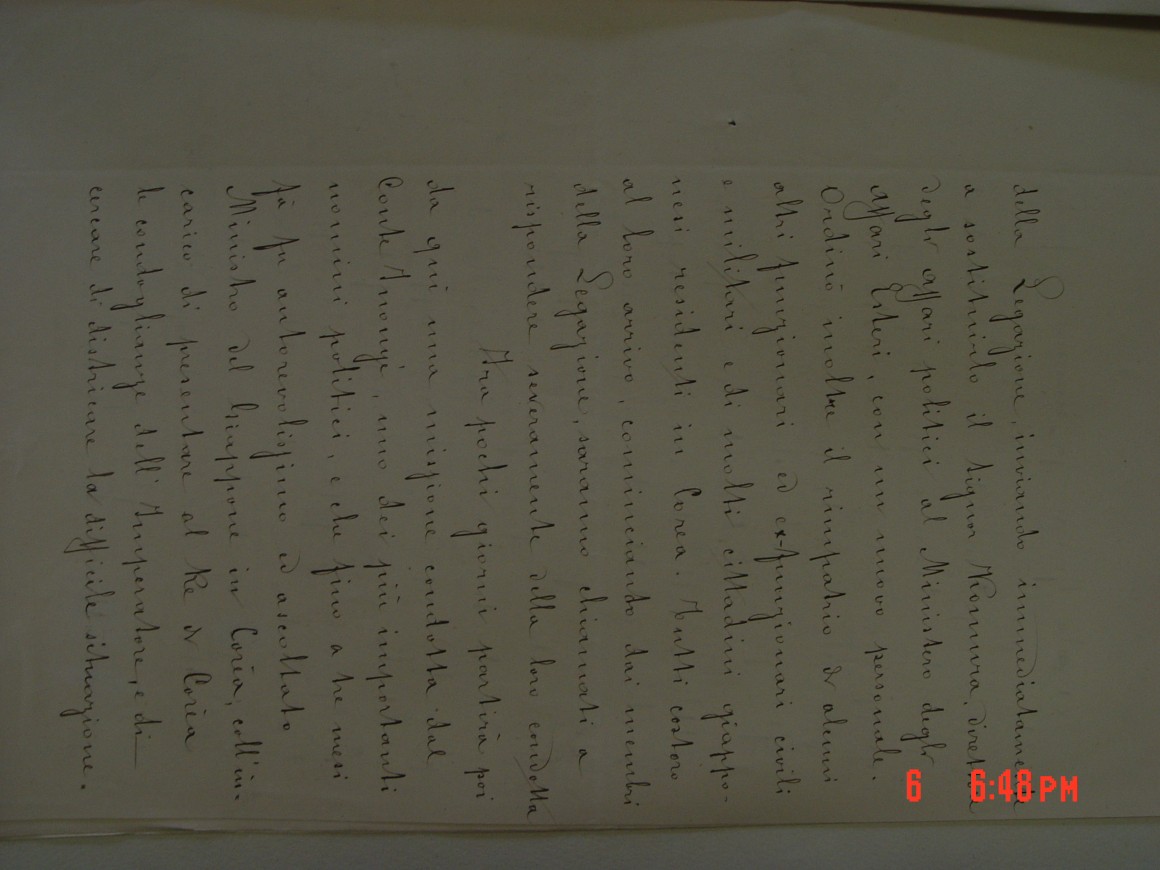 della Legazione, inviando immediatamente
a sostituirlo il Signor Komura, direttore
degli affari politici al Ministero degli
affari Esteri, con un nuovo personale.
Ordinò inoltre il rimpatrio di alcuni
altri funzionari ed ex-funzionari civili
e militari e di molti cittadini giappo-
nesi residenti in Corea. Tutti costoro
al loro arrivo, cominciando dai membri
della Legazione, saranno chiamati a
rispondere severamente della loro condotta
Fra pochi giorni partirà poi
da qui una missione condotta dal
Conte Inouyé, uno dei più importanti
uomini politici, e che fino a tre mesi
fà fu autorevolissimo ed ascoltato
Ministro del Giappone in Corèa, coll'in-
carico di presentare al Re di Corèa
le condoglianze dell'Imperatore, e di
cercare di districare la difficile situazione.
6 6:48PM